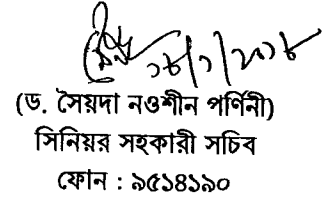 ১৮/১/২০১৮
(ড. সৈয়দা নওশীন পর্ণিনী)
সিনিয়র সহকারী সচিব
ফোন : ৯৫১৪১৯০